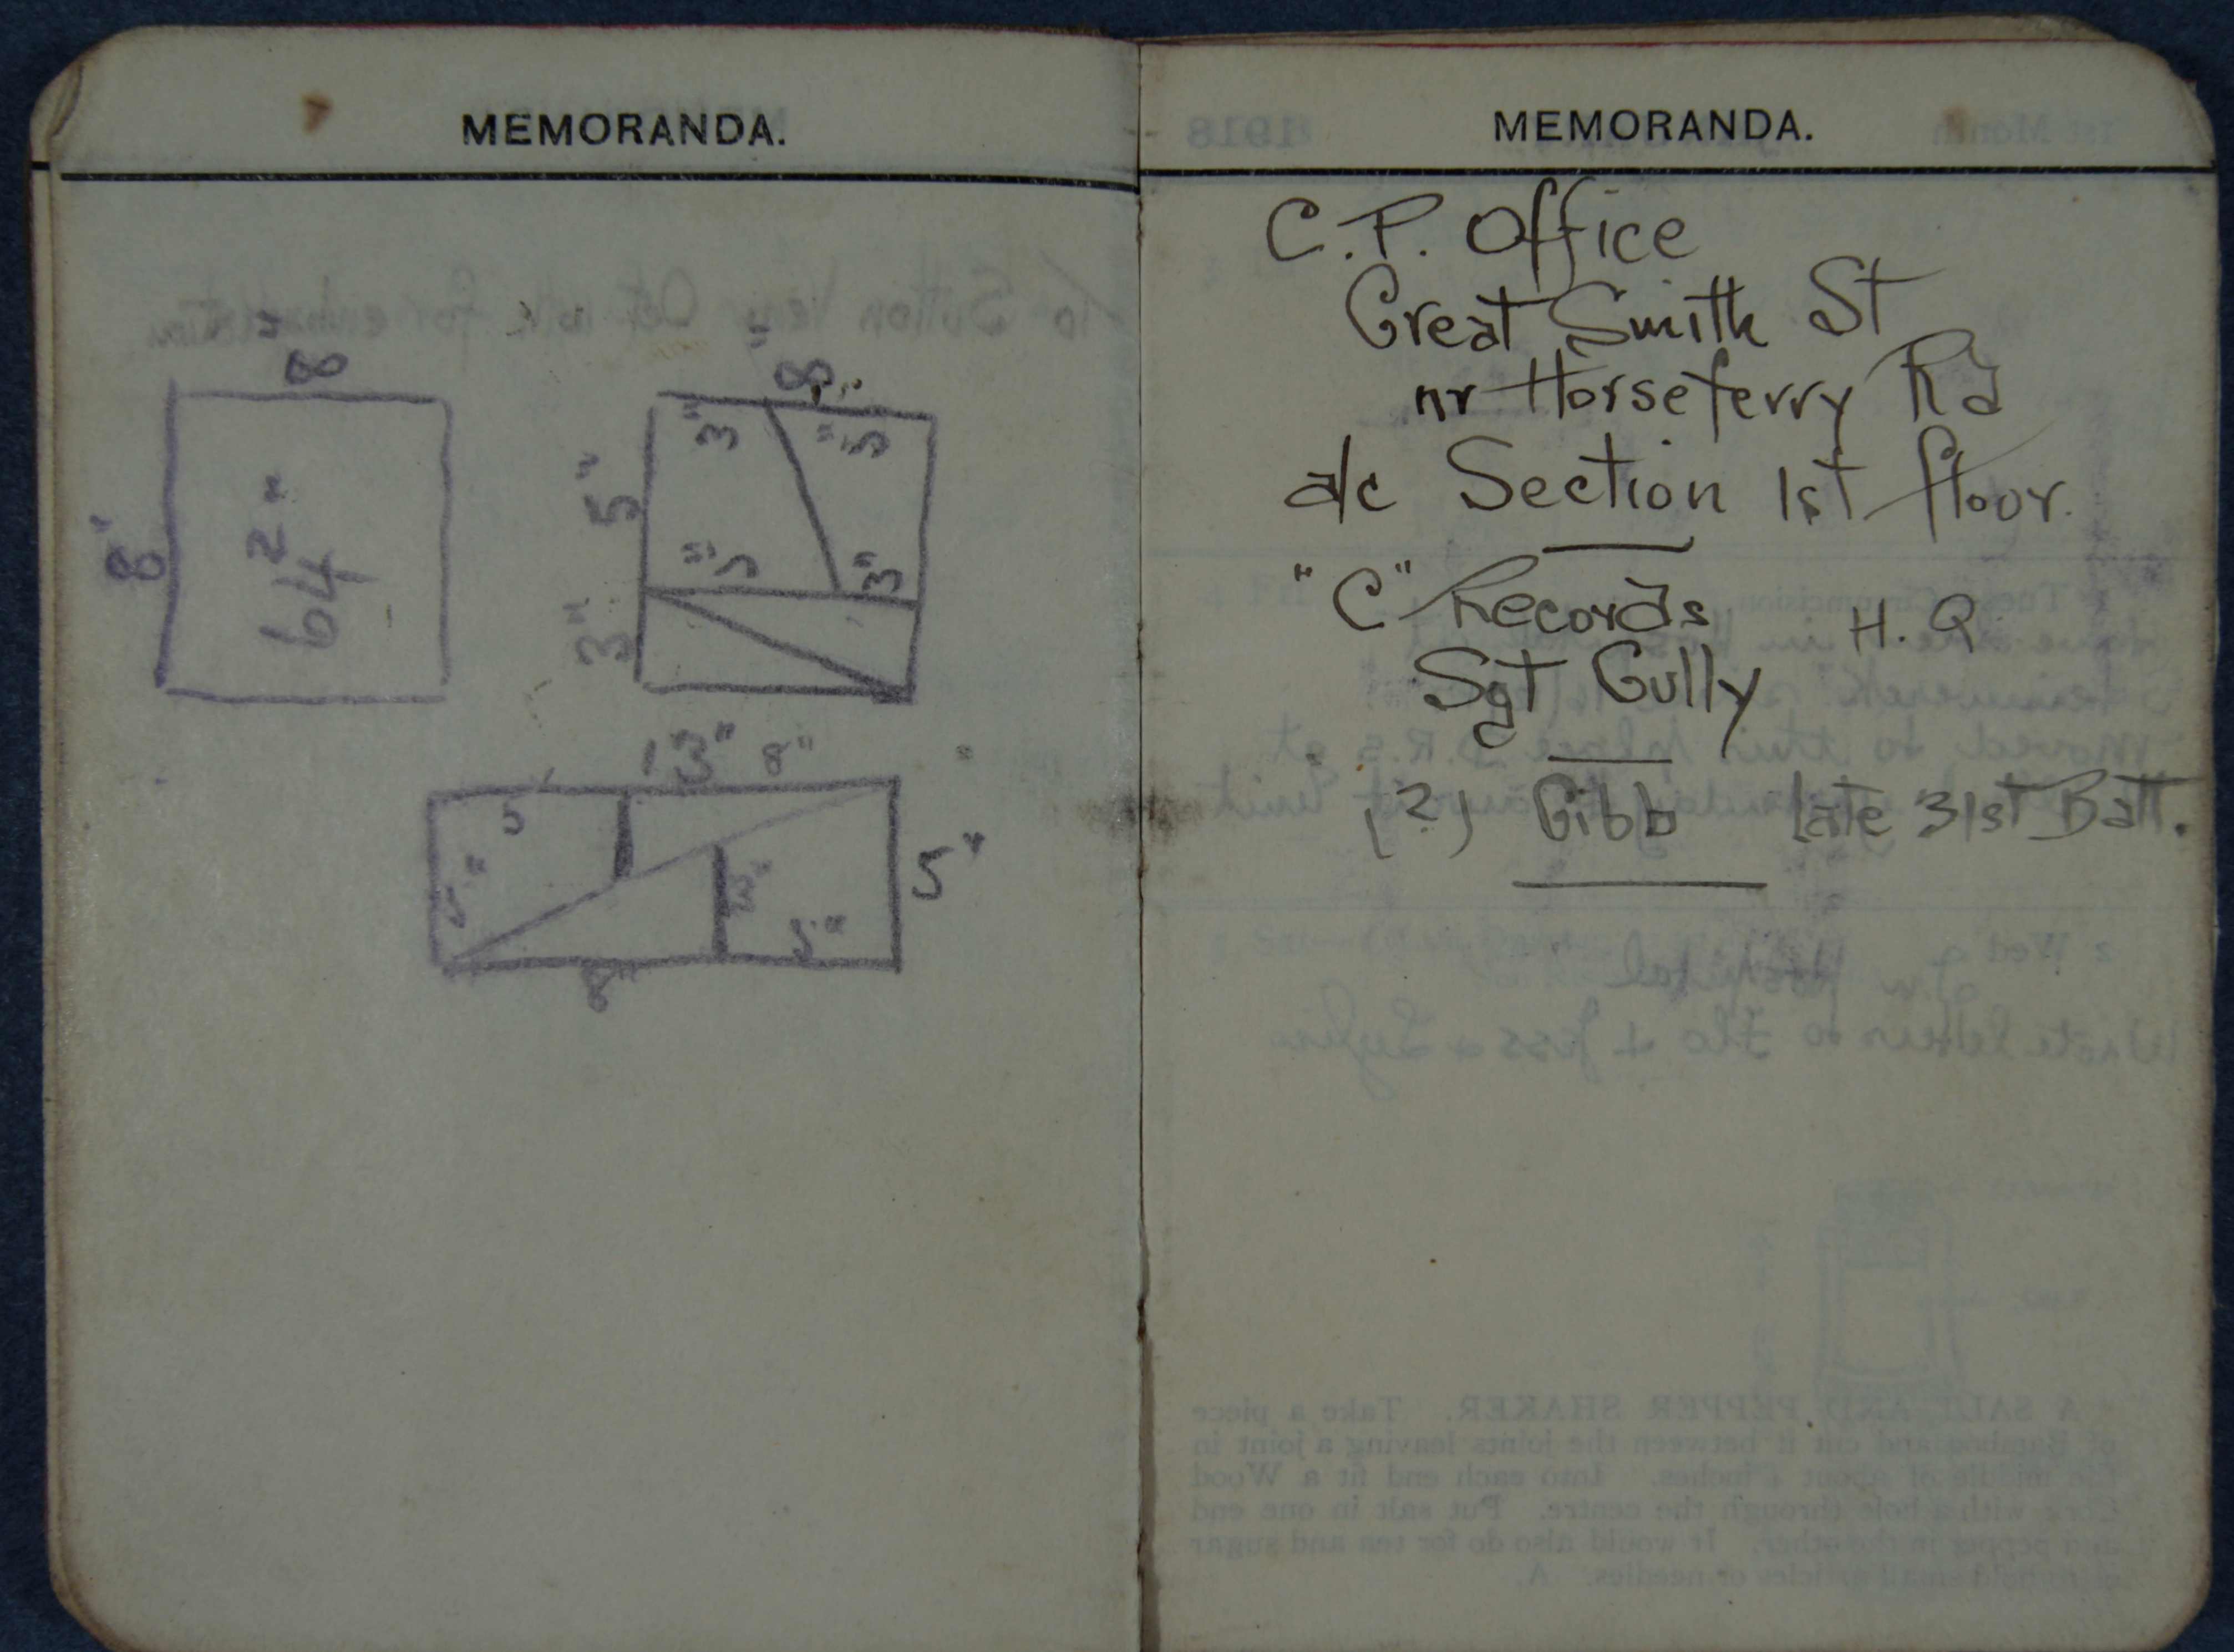 MEMORANDA.
8"
8"
64²"
8"
3"
5"
5"
5"
3"
3"
13" 8"
5
5"
5"
3"
5"
8"
MEMORANDA.
C.P. Office
Great Smith St
nr Horseferry Rd
a/c Section 1st floor.
"C" Records H.Q.
Sgt Gully
(2) Gibb late 31st Batt.